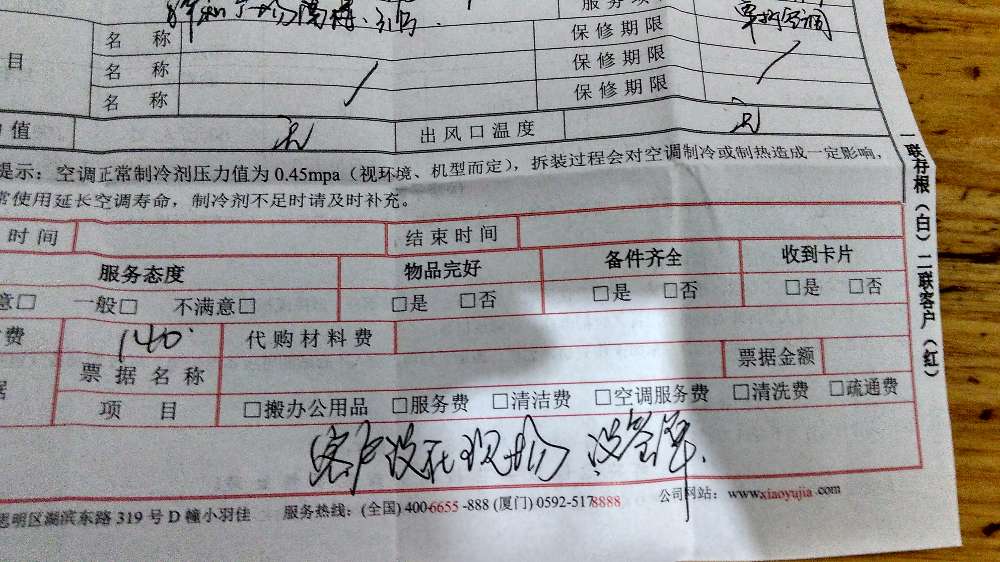 服务项
名 称 保修期限 单拆空调
目 名 称 / 保修期限 /
名 称 保修期限
值 无 出风口温度 无
提示：空调正常制冷剂压力值为 0.45mpa（视环境、机型而定），拆装过程会对空调制冷或制热造成一定影响，
常使用延长空调寿命，制冷剂不足时请及时补充。
时间 结束时间
服务态度 物品完好 备件齐全 收到卡片
意□ 一般□ 不满意□ □是 □否 □是 □否 □是 □否
费 140 代购材料费
据 票据名称 票据金额
项 目 □搬办公用品 □服务费 □清洁费 □空调服务费 □清洗费 □疏通费
客户没在现场 没签单.
思明区湖滨东路 319 号 D 幢小羽佳 服务热线：(全国) 400-6655 -888 (厦门) 0592-5178888 公司网站：www.xiaoyujia.com
一联存根（白）二联客户（红）